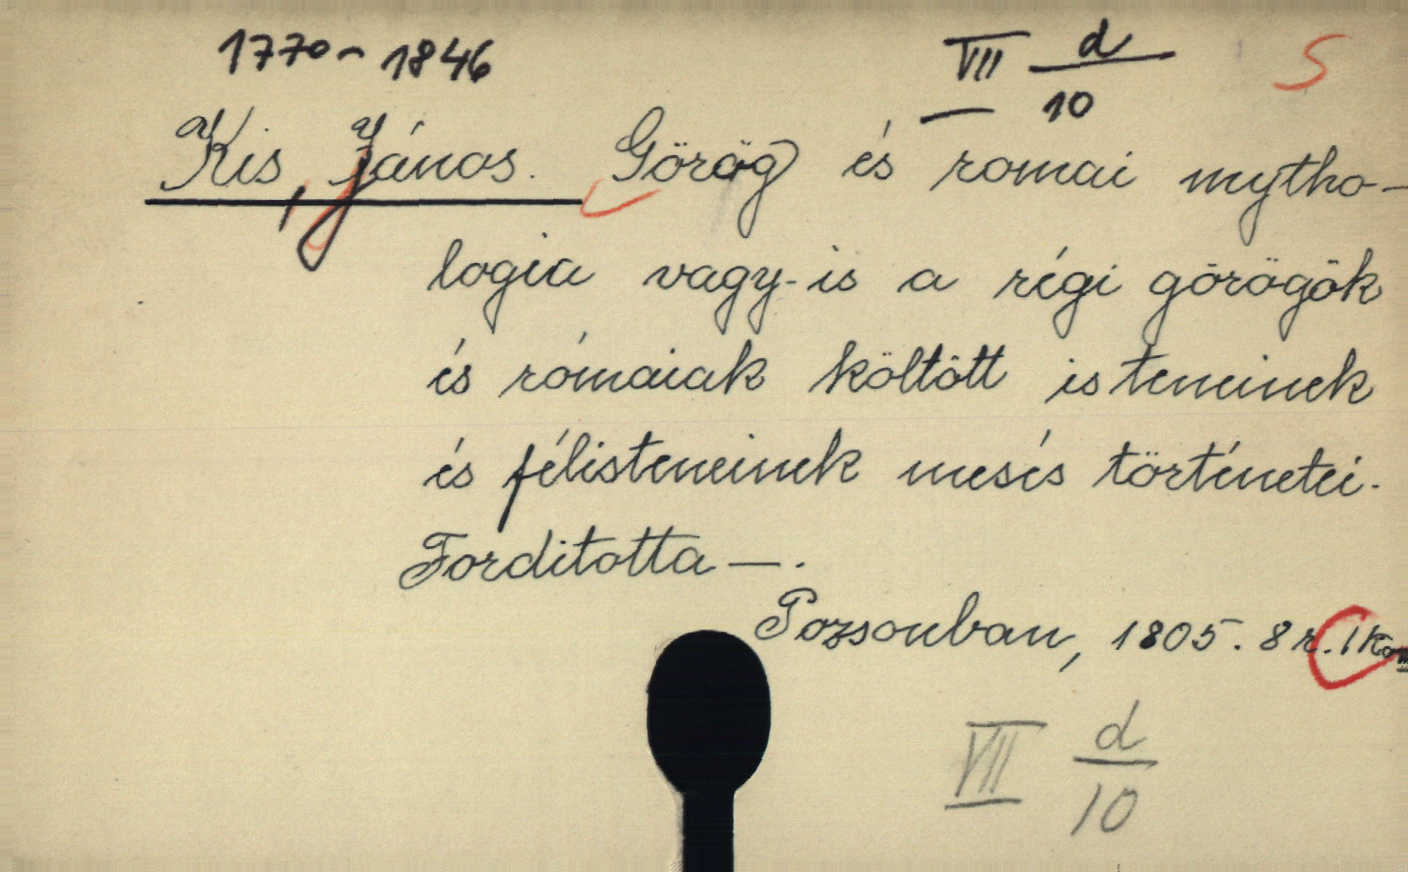 1770 - 1846 VII d/10 S
Kis, János. Görög és romai mytho-
logia vagy-is a régi görögök
és rómaiak költött isteneinek
és félisteneinek mesés történetei.
Forditotta —.
Pozsonban, 1805. 8r. 1 
VII d/10